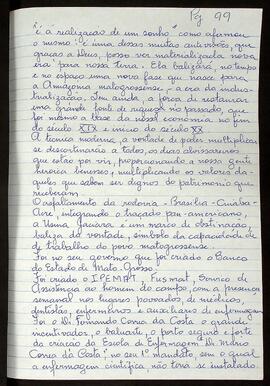 Pg 99
"é a realização de um sonho" como afirmou
o mesmo: é uma dessas muitas autovisões, que
graças a Deus, posso ver materializada nessa
era para nossa terra. Ela balizará no tempo
e no espaço uma nova fase que nasce para
a Amazônia matogrossense - a era da indus-
trialização. Sem dúvida, a força de restaurar
uma grande fonte de riqueza no passado, que
foi mesmo a base da nossa economia no fim
do século XIX e início do século XX
A técnica moderna, a vontade de poder multiplicar
se descortinarão a todos, os dias alvissareiros
que estão por vir, proporcionando a nossa gente
heroica benesses, multiplicando os valores da-
queles que sabem ser dignos do patrimonio que
receberam.
O asfaltamento da rodovia - Brasilia - Cuiabá -
Acre, integrando o traçado pan-americano,
a Usina Jaciara é um marco de obstinação,
baliza de vontade, simbolo da capacidade
de trabalho do povo matogrossense.
Foi no seu governo que foi criado o Banco
do Estado de Mato Grosso.
Foi criado o IPEMAT, Fusmat, Serviço de
Assistência ao homem do campo, com a presença
semanal nos lugares povoados, de médicos,
dentistas, enfermeiros e auxiliares de enfermagem
Foi o Dr. Fernando Correa da Costa o grande
incentivador, o baluarte, o porto seguro e forte
da criação da Escola de Enfermagem "Dr. Mario
Correa da Costa" no seu 1º mandato, sem o qual
a enfermagem científica, não teria se instalado